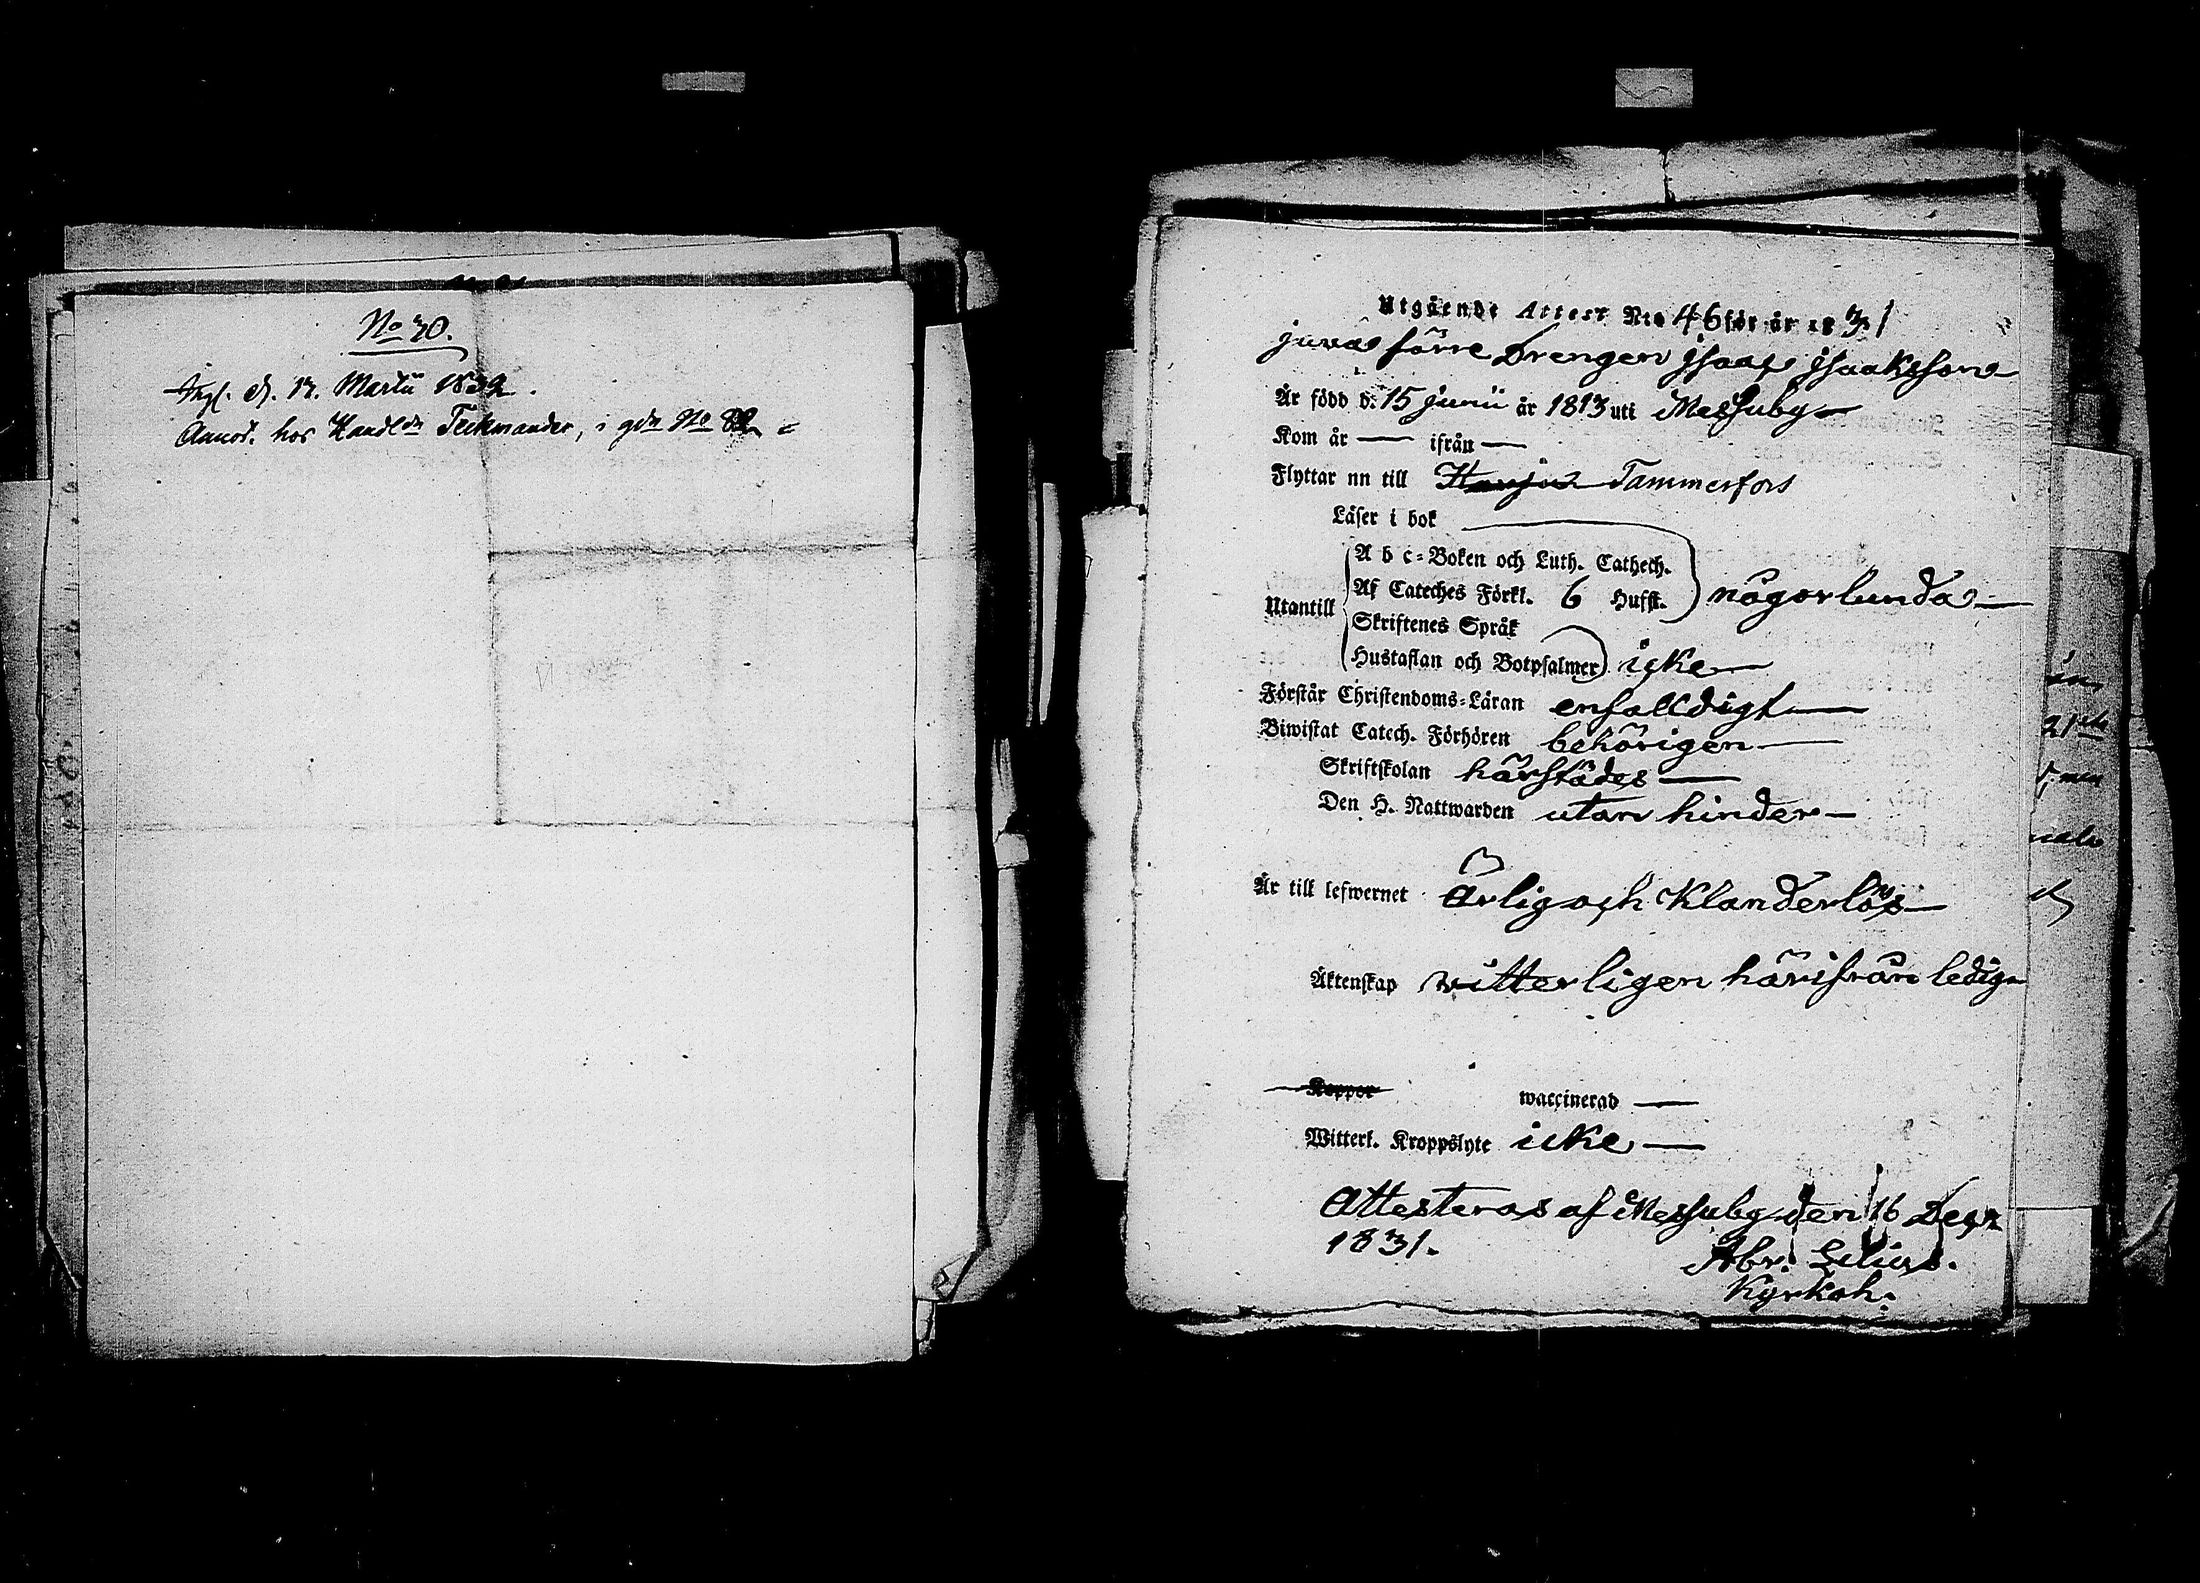 No 30.
Ingl. d. 13. Martii 1832.
Annot. hos Handl:dn Teckmander, i gdn No 82
Utgående Attest N:o 46 för år 1831
förre Drengen Jsaac Jsaaksson
Är född d. 15 Junii år 1813 uti Messuby
Kom år — ifrån —
Flyttar nu till Harju Tammerfors
Läser i bok
A b c-Boken och Luth. Cathech.
Utantill Af Cateches Förkl. 6 Hufst. någorlunda
Skriftenes Språk
Hustaflan och Botpsalmer icke
Förstår Christendoms-Läran enfalldigt
Biwistat Catech. Förhören behörigen
Skriftskolan härstädes
Den H. Nattwarden utan hinder
Är till lefwernet Ärlig och Klanderlös
Äktenskap witterligen härifrån ledig
Koppor waccinerad —
Witterl. Kroppslyte icke —
Attesteras af Messuby den 16 Dec:r
1831.
Abr. Lilius.
Kyrkoh: